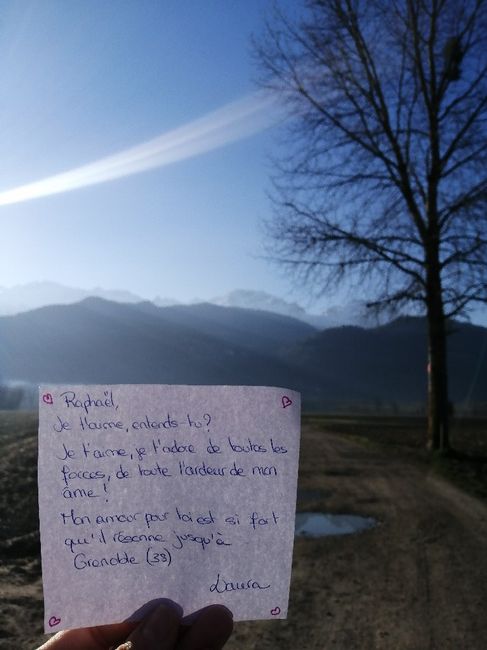 Raphaël,
Je t'aime, entends-tu?
Je t'aime, je t'adore de toutes les
forces, de toute l'ardeur de mon
âme!
Mon amour pour toi est si fort
qu'il résonne jusqu'à
Grenoble (38)
Laura